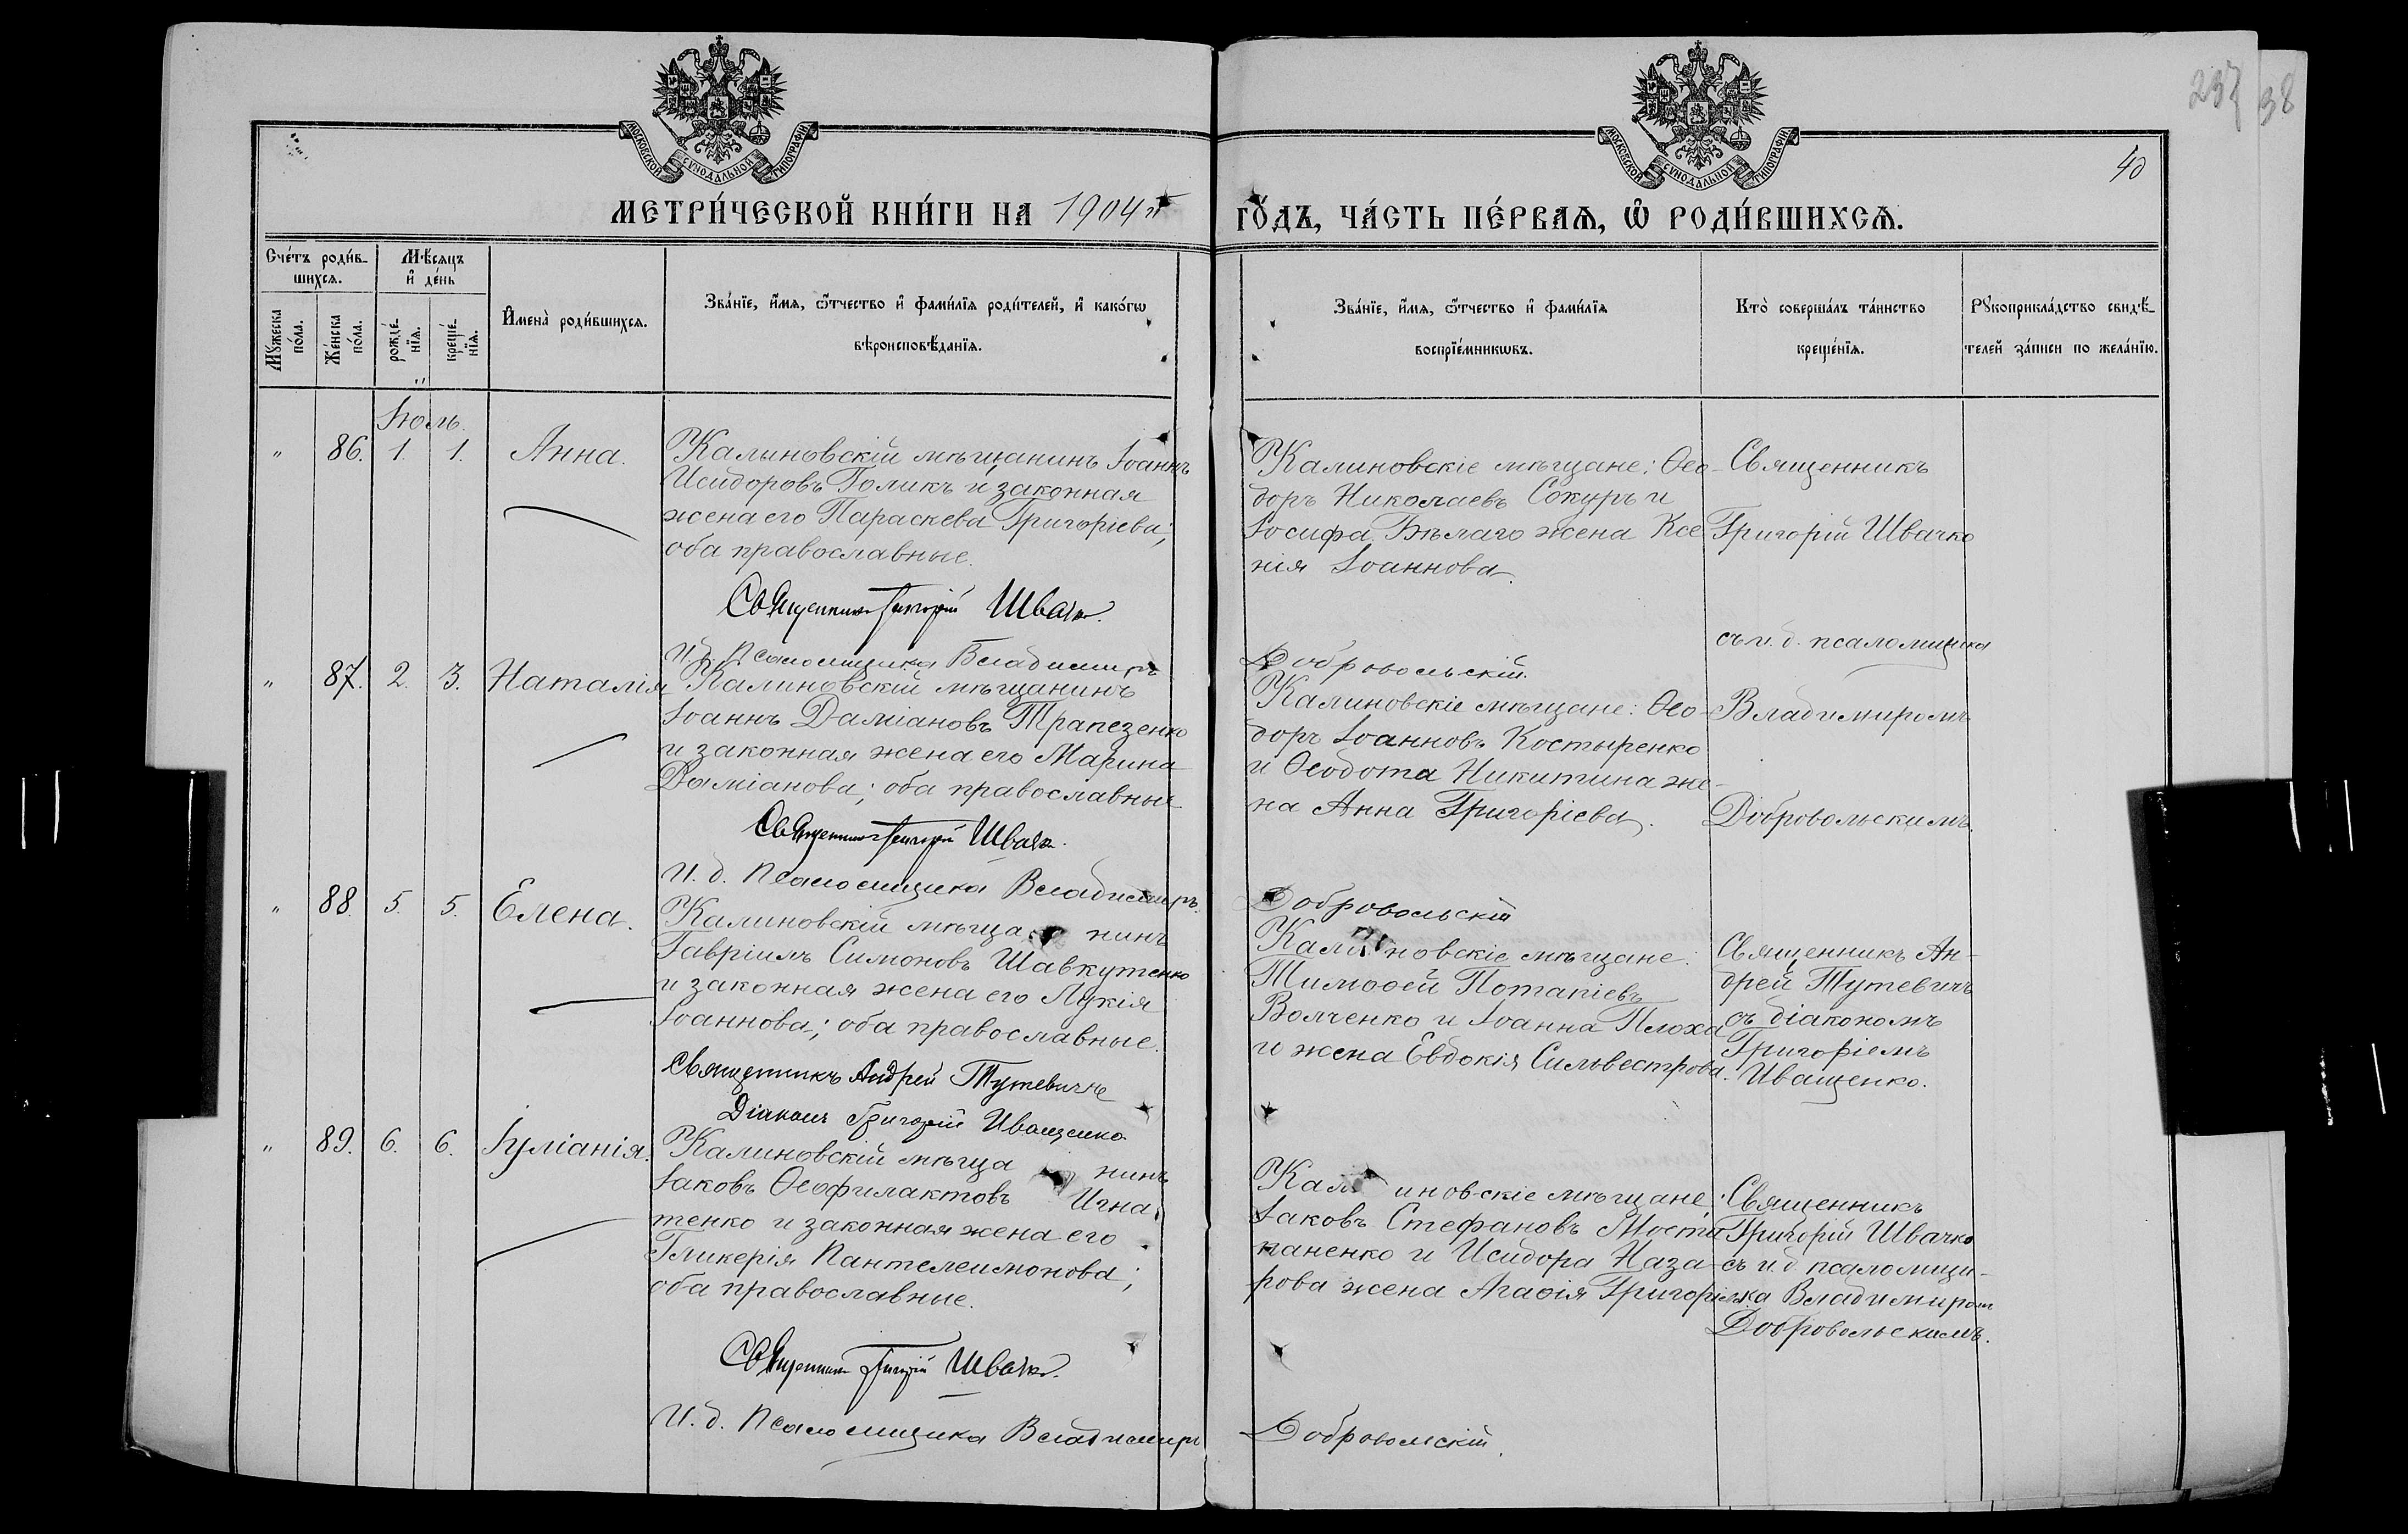 МОСКОВСКОЙ СѴНОДАЛЬНОЙ ТИПОГРАФІИ
МОСКОВСКОЙ СѴНОДАЛЬНОЙ ТИПОГРАФІИ
38
40
МЕТРИ́ЧЕСКОЙ КНИ́ГИ НА 1904й
ГО́ДЪ, ЧА́СТЬ ПЕ́РВАѦ, Ѡ҆ РОДИ́ВШИХСѦ.
Сче́тъ роди́в-
шихсѧ.
Мꙋ́жеска
по́ла.
Же́нска
по́ла.
Мѣ́сѧцъ
и҆ де́нь
рожде́-
нїѧ.
креще́-
нїѧ.
И҆мена̀ роди́вшихсѧ.
Зва́нїе, и҆́мѧ, ѻ҆́тчество и҆ фами́лїѧ роди́телей, и҆ како́гѡ
вѣроисповѣ́данїѧ.
Зва́нїе, и҆́мѧ, ѻ҆́тчество и҆ фами́лїѧ
воспрїе́мникѡвъ.
Кто̀ соверша́лъ та́инство
креще́нїѧ.
Рꙋкоприкла́дство свидѣ́-
телей за́писи по жела́нїю.
Іюль.
" 86. 1. 1. Анна.
Калиновскій мѣщанинъ Іоаннъ
Исидоровъ Голикъ и законная
жена его Параскева Григоріева;
оба православные.
Священникъ Григорій Швачко.
И. д. Псаломщика Владимиръ
Добровольскій.
Калиновскіе мѣщане: Ѳео-
доръ Николаевъ Сокуръ и
Іосифа Бѣлаго жена Ксе
нія Іоаннова.
Священникъ
Григорій Швачко
съ и. д. псаломщика
Владимиромъ
Добровольскимъ.
" 87. 2. 3. Наталія
Калиновскій мѣщанинъ
Іоаннъ Даміановъ Трапезенко
и законная жена его Марина
Даміанова; оба православные
Священникъ Григорій Швачко.
И. д. Псаломщика Владимиръ
Добровольскій
Калиновскіе мѣщане: Ѳео-
доръ Іоанновъ Костыренко
и Ѳеодота Никитина же-
на Анна Григоріева.
" 88. 5. 5. Елена.
Калиновскій мѣща нинъ
Гавріилъ Симоновъ Шавкутенко
и законная жена его Лукія
Іоаннова; оба православные.
Священникъ Андрей Тутевичъ
Діаконъ Григорій Иващенко
Калиновскіе мѣщане:
Тимоѳей Потапіевъ
Волченко и Іоанна Плоха
го жена Евдокія Сильвестрова.
Священникъ Ан-
дрей Тутевичъ
съ діакономъ
Григоріемъ
Иващенко.
" 89. 6. 6. Іуліанія.
Калиновскій мѣща нинъ
Іаковъ Ѳеофилактовъ Игна
тенко и законная жена его
Гликерія Пантелеимонова;
оба православные.
Священникъ Григорій Швачко.
И. д. Псаломщика Владимиръ
Добровольскій.
Калиновскіе мѣщане:
Іаковъ Стефановъ
и Исидора Наза-
рова жена Агаѳія
Священникъ
Григорій Швачко
съ и. д. псаломщи-
ка Владимиром
Добровольскимъ.